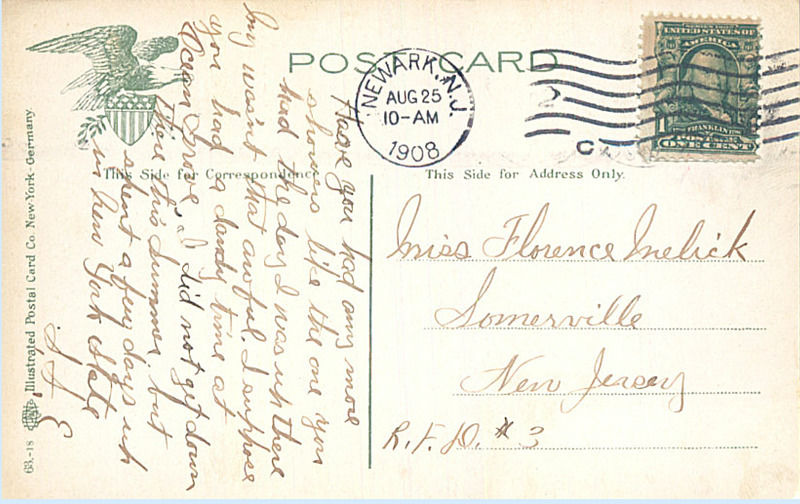 POST CARD
NEWARK, N.J.
AUG 25
10-AM
1908
UNITED STATES OF
AMERICA
1
FRANKLIN
ONE CENT
This Side for Correspondence.
This Side for Address Only.
Have you had any more
showers like the one you
had the day I was up there
boy wasn't that awful. I suppose
you had a dandy time at
Ocean Grove. I did not get down
there this summer, but
spent a few days up
in New York State
S. A. E
Miss Florence Melick
Somerville
New Jersey
R. F. D. # 3
63.-18 Illustrated Postal Card Co. New-York - Germany.